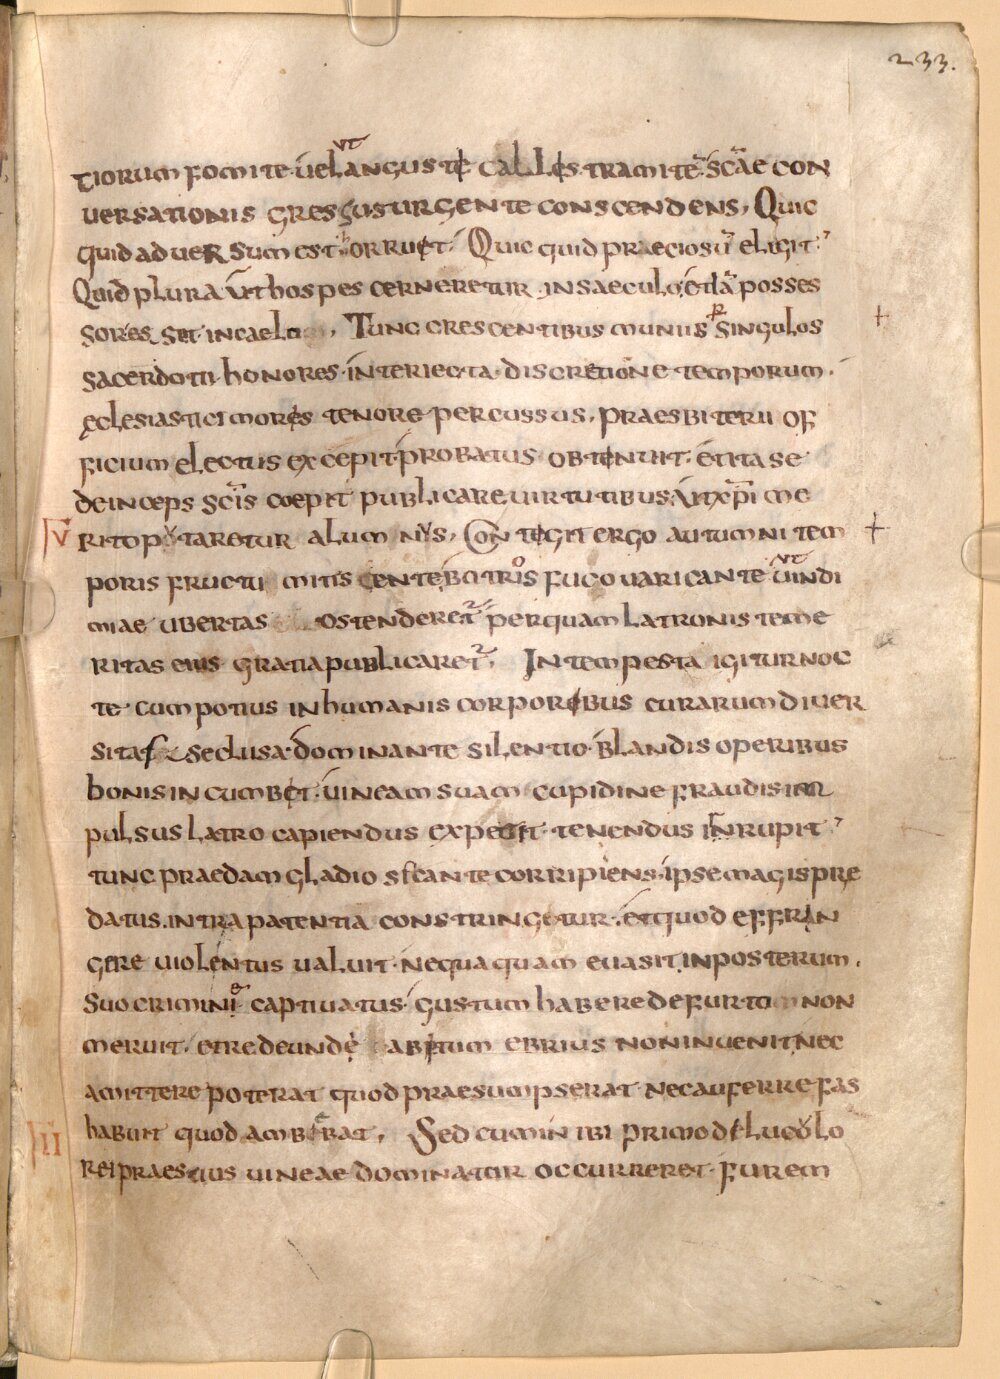 233.
tiorum fomite · uel ut anguste calles tramitē scāe con
uersationis gressus urgente conscendens, Quic
quid aduersum est orruit · Quicquid praeciosū eligit ·
Quid plura ut hospes cerneretur in saeculo et iā posses
sores sit in caelo, Tunc crescentibus muniis p singulos
sacerdotii honores interiecta discretione temporum ·
eclesiastici mores tenore percussus, praesbiterii of
ficium electus excepit probatus obtenuit · et ita se
deinceps scīs coepit publicare uirtutibus ut xpī me
V rito putaretur alumnus, Contegit ergo autumni tem
poris fructu mitiscente botros fuco uaricante ut uindi
miae ubertas ostenderetur perquam latronis teme
ritas eius gratia publicaretur, Intempesta igitur noc
te · cum potius in humanis corporibus curarum diuer
sitas seclusa · dominante silentio · blandis operibus
bonis incumbit · uineam suam cupidine fraudis im
pulsus latro capiendus expetit · tenendus inrupit ·
tunc praedam gladio secante corripiens · ipse magis pre
datus · intra patentia constringetur · et quod effrin
gere uiolentus ualuit · nequaquam euasit in posterum ·
Suo crimini captiuatus · gustum habere de furto non
meruit · et redeunde abitum ebrius non inuenit nec
amittere poterat quod praesumpserat · nec auferre fas
habuit quod ambierat, Sed cum inibi primo diluculo
VII rei praescius uineae dominatur occurreret · furem